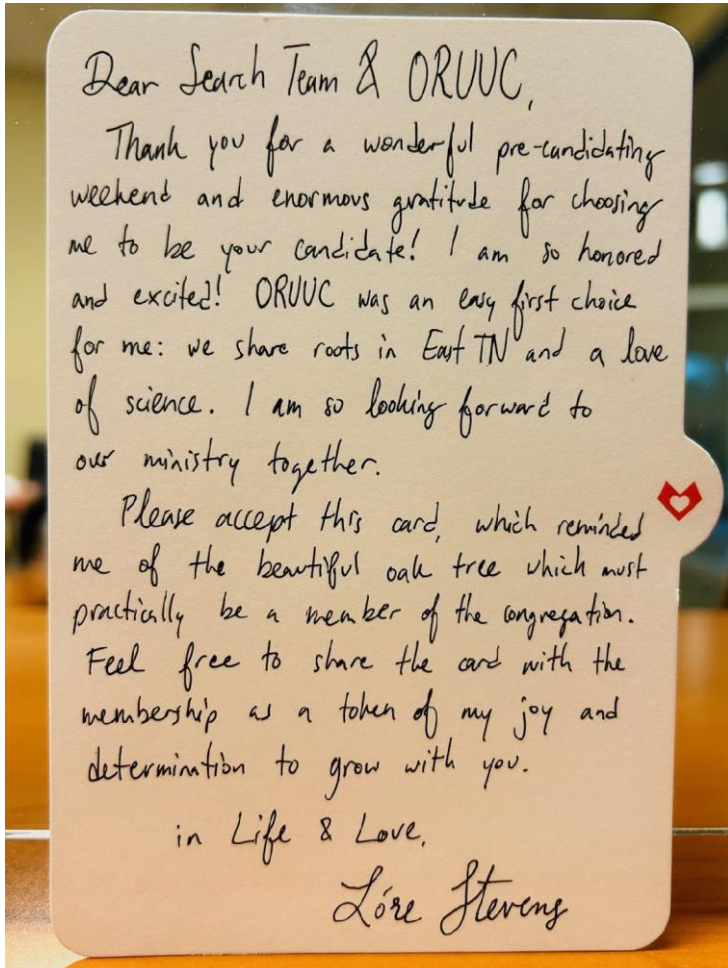 Dear Search Team & ORUUC,
Thank you for a wonderful pre-candidating
weekend and enormous gratitude for choosing
me to be your candidate! I am so honored
and excited! ORUUC was an easy first choice
for me: we share roots in East TN and a love
of science. I am so looking forward to
our ministry together.
Please accept this card, which reminded
me of the beautiful oak tree which must
practically be a member of the congregation.
Feel free to share the card with the
membership as a token of my joy and
determination to grow with you.
in Life & Love,
Lóre Stevens